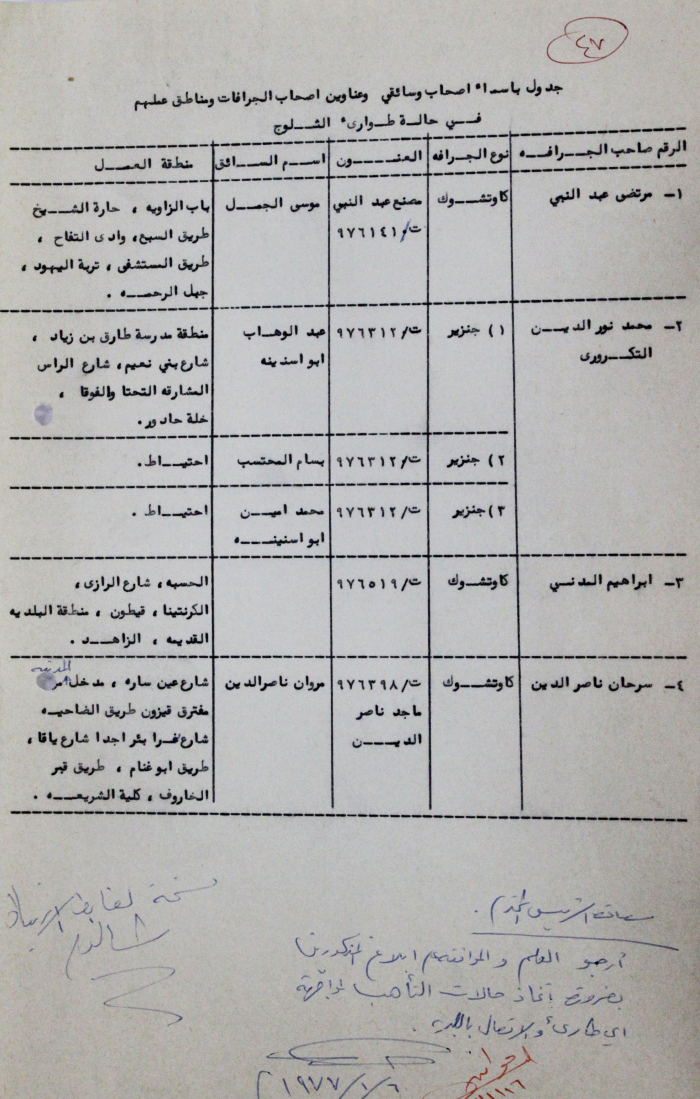 ٤٧
جدول باسماء اصحاب وسائقي وعناوين اصحاب الجرافات ومناطق عملهم
فــي حالة طوارىء الثلوج
الرقم صاحب الجرافه نوع الجرافه العنون اسم السائق منطقة العمل
١- مرتضى عبد النبي كاوتشوك مصنع عبد النبي موسى الجمل باب الزاويه ، حارة الشيخ
ت/٩٧٦١٤١ طريق السبع، وادى التفاح ،
طريق المستشفى ، تربة اليهود ،
جبل الرحمه .
٢- محمد نور الدين ١) جنزير ت/٩٧٦٣١٢ عبد الوهاب منطقة مدرسة طارق بن زياد ،
التكرورى ابو اسنينه شارع بني نعيم، شارع الراس
المشارقه التحتا والفوقا ،
خلة حاد ور.
٢) جنزير ت/٩٧٦٣١٢ بسام المحتسب احتياط.
٣) جنزير ت/٩٧٦٣١٢ محمد امين احتياط .
ابو اسنينه
٣- ابراهيم المدني كاوتشوك ت/٩٧٦٥١٩ الحسبه ، شارع الرازى ،
الكرنتينا ، قيطون ، منطقة البلديه
القديمه ، الزاهد .
المدينه
٤- سرحان ناصر الدين كاوتشوك ت/٩٧٦٣٩٨ مروان ناصرالدين شارع عين ساره ، مدخل
ماجد ناصر مفترق قيزون طريق الضاحيه
الدين شارع فرا بئر اجدا شارع يافا ،
طريق ابو غنام ، طريق قبر
الخاروف ، كلية الشريعه .
نسخة
سعادة الرئيس المحترم .
أرجو العلم والموافقة ابلاغ المذكورين
بضرورة إتخاذ حالات التأهب لمواجهة
اي طارىء والاتصال بالبلدية .
١٩٧٧/١/٦